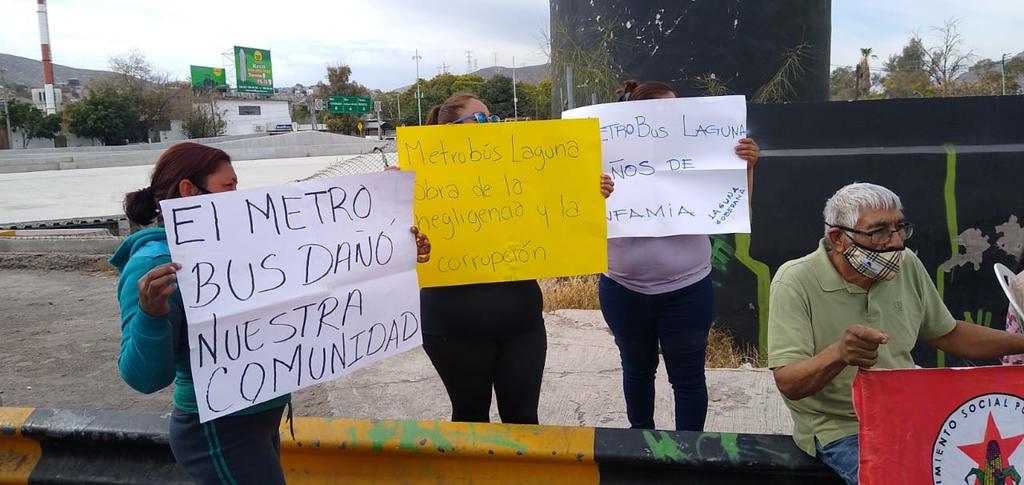 El METRO
BUS DAÑÓ
NUESTRA
COMUNIDAD
Metrobús Laguna
obra de la
negligencia y la
corrupción
METROBUS LAGUNA
AÑOS DE
INFAMIA
LAGUNA
SOBERANA
MIENTO SOCIAL PO